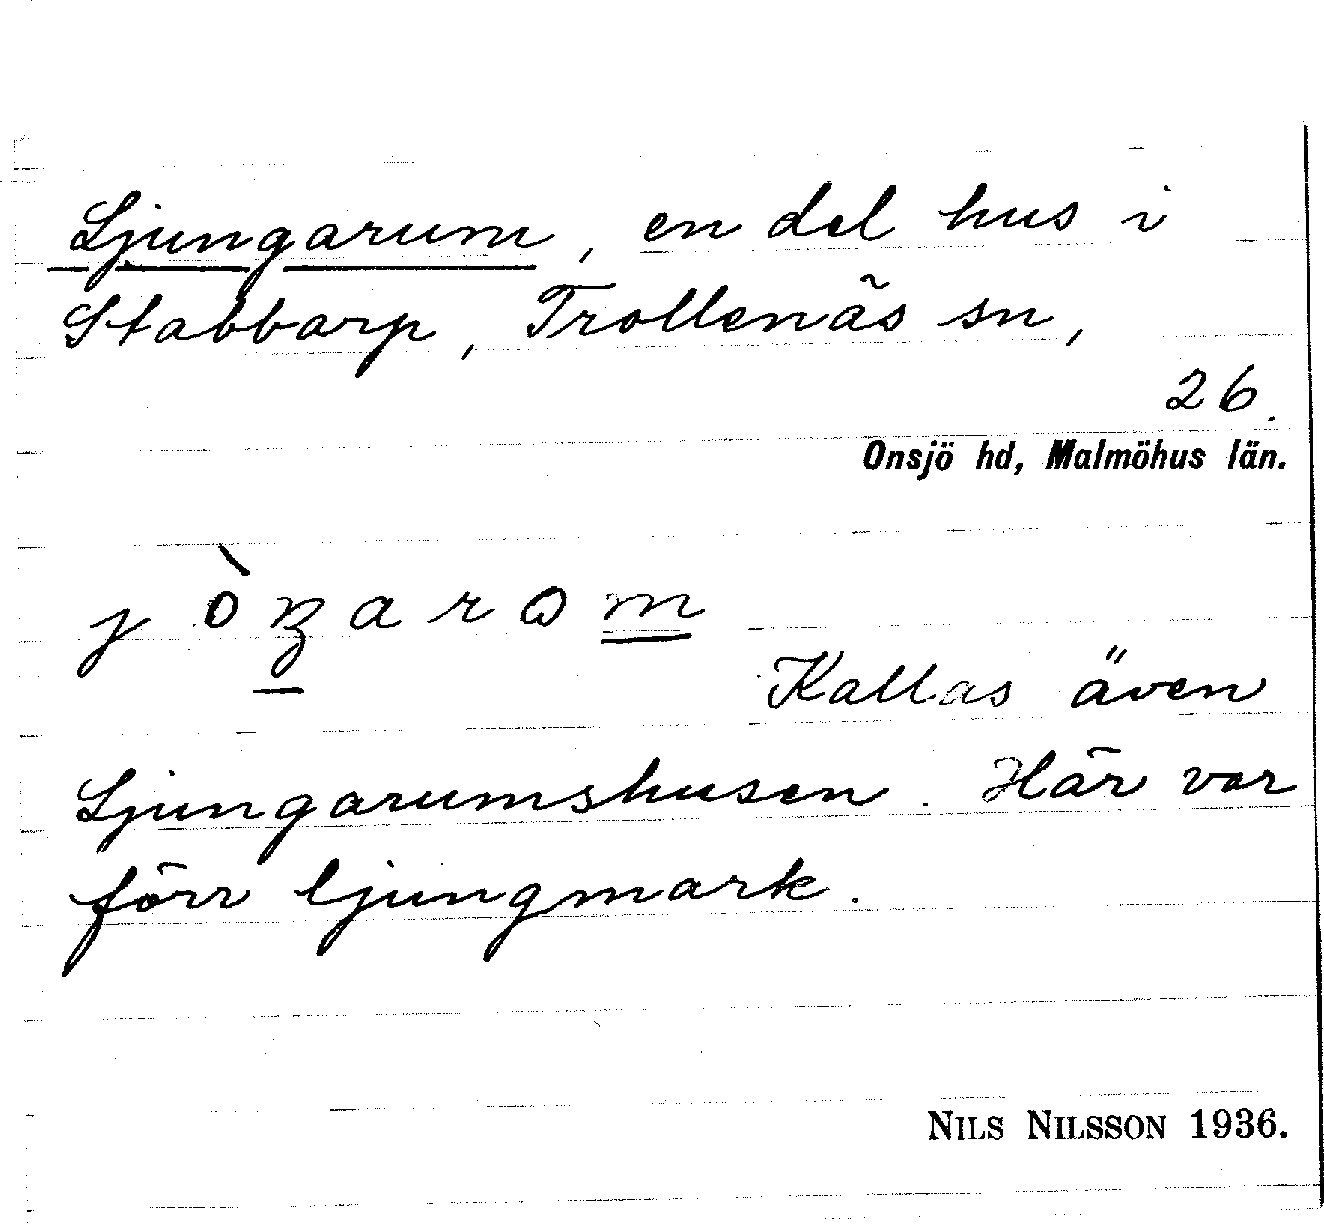 Ljungarum, en del hus i
Stabbarp, Trollenäs sn,
26.
Onsjö hd, Malmöhus län.
Kallas även
Ljungarumshusen. Här var
förr ljungmark.
NILS NILSSON 1936.